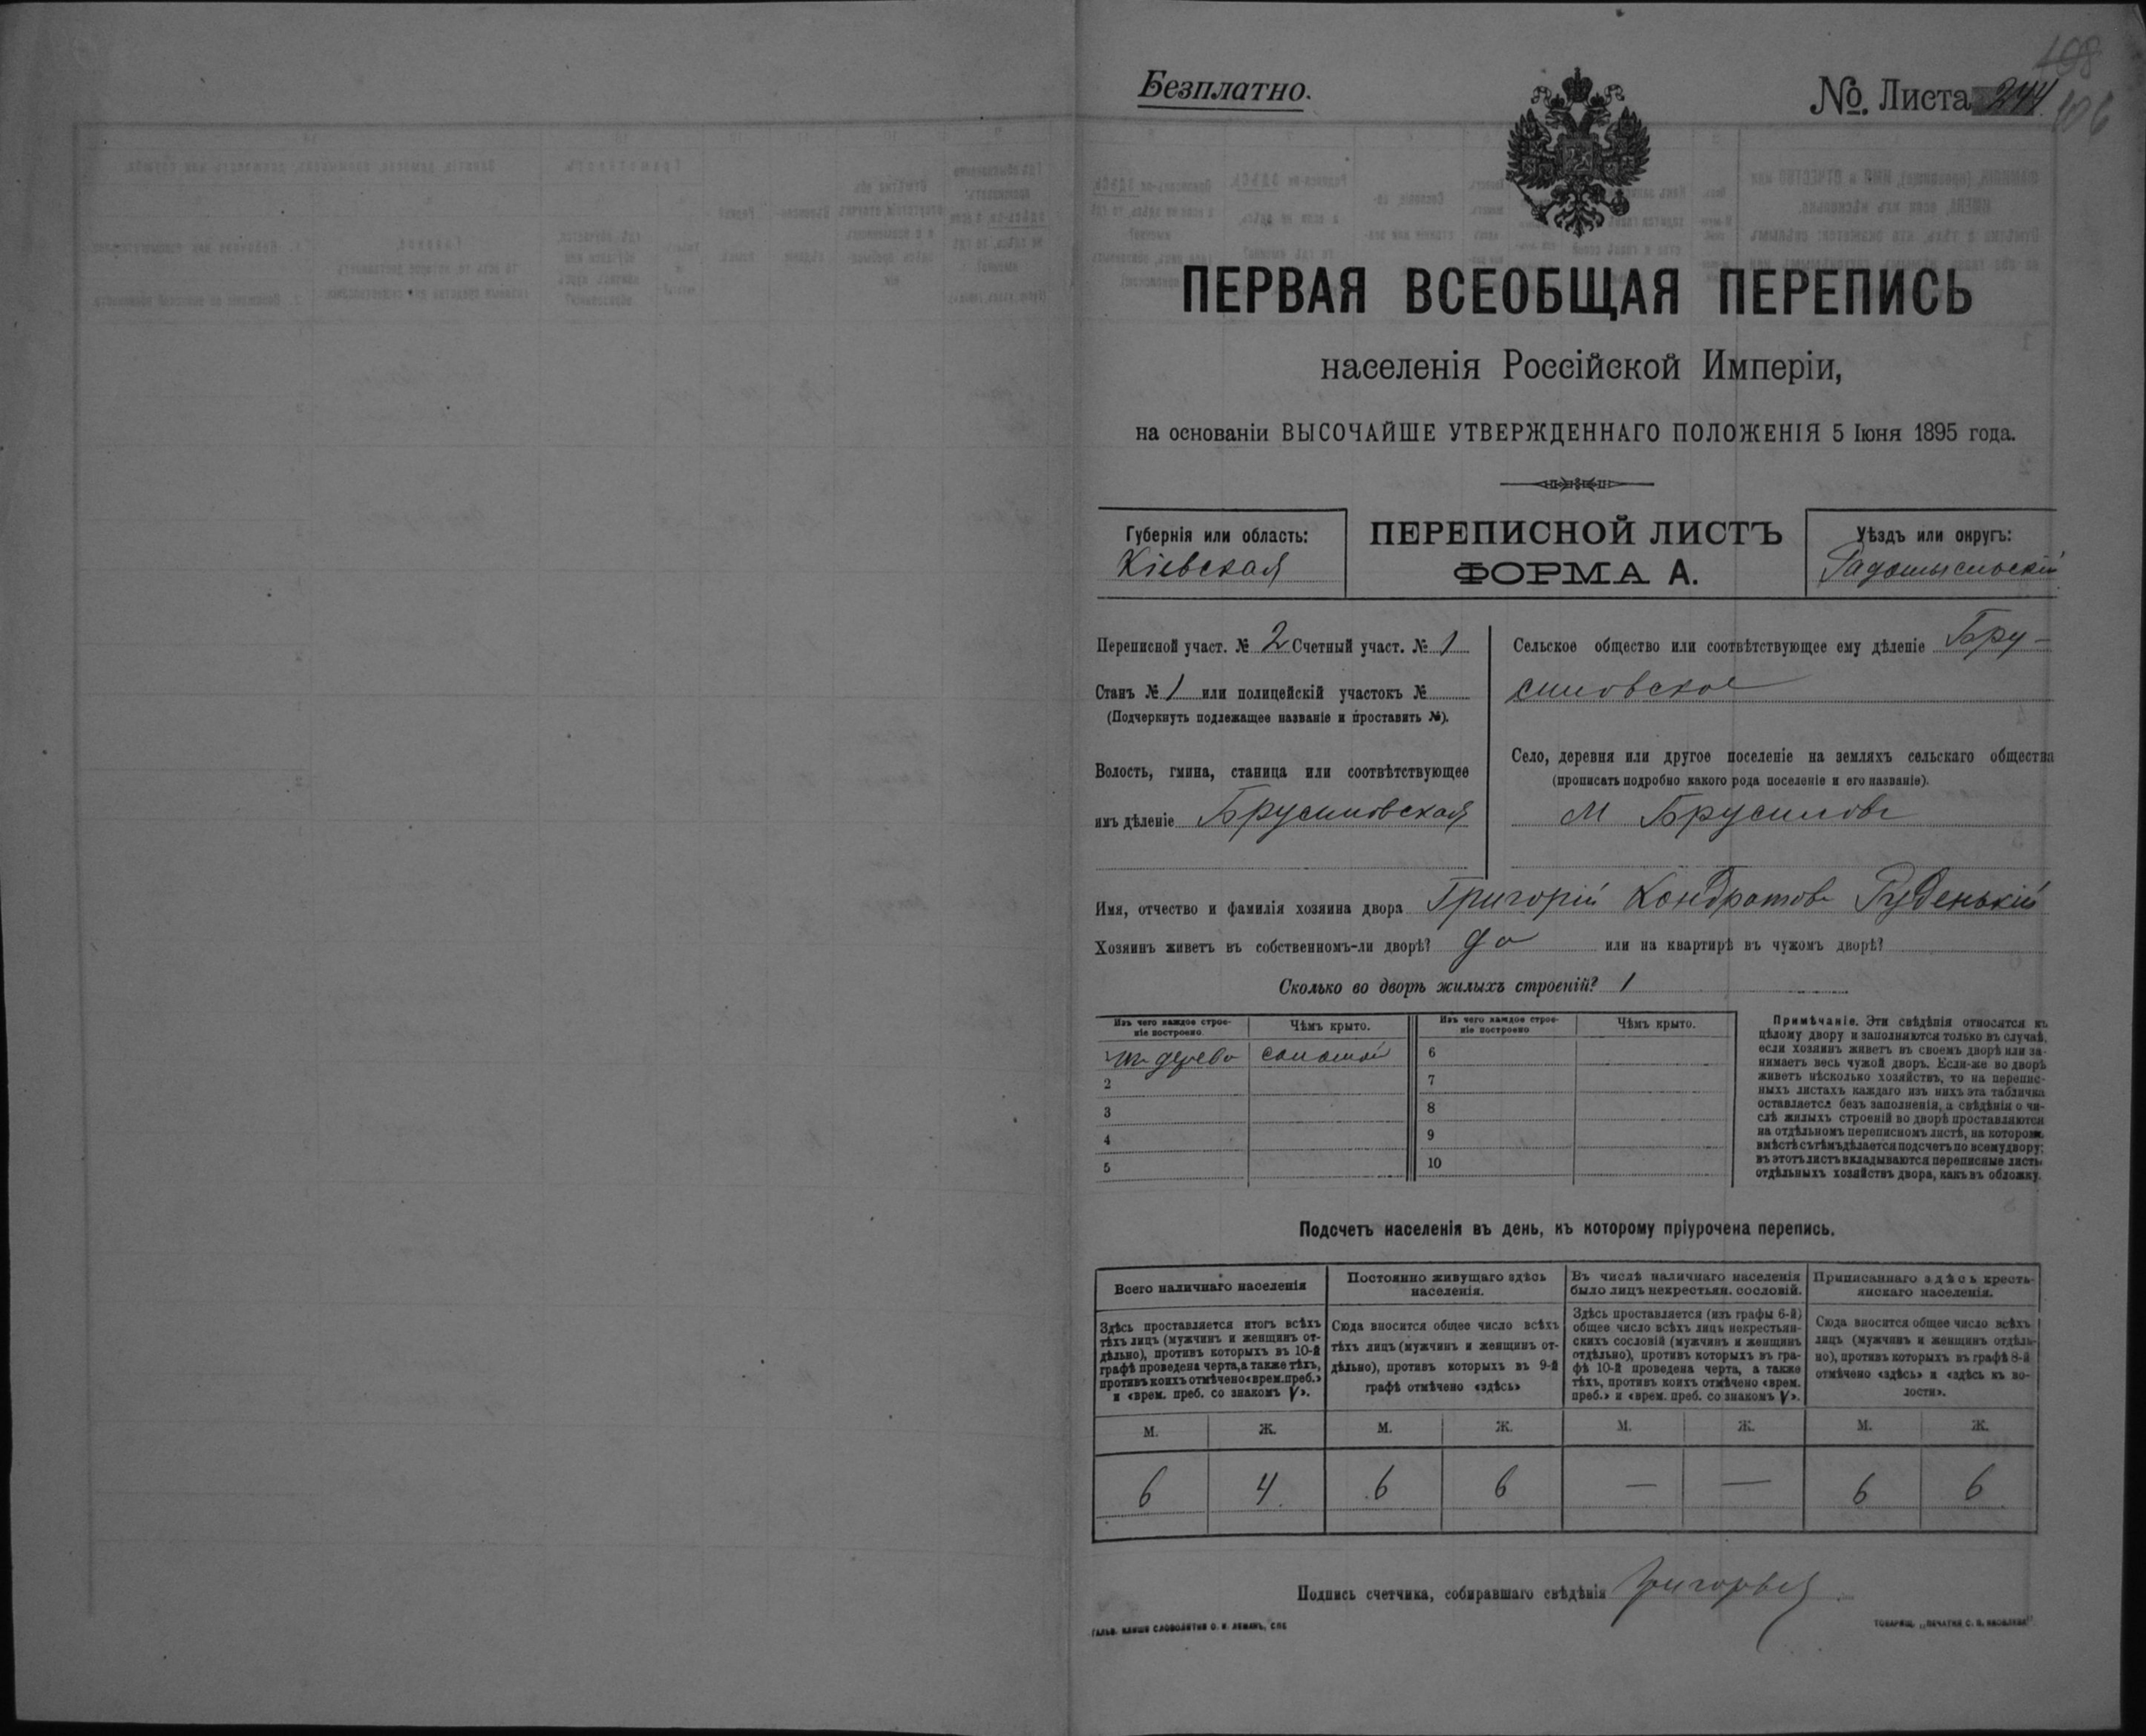 Безплатно.
№ Листа 244.
106
ПЕРВАЯ ВСЕОБЩАЯ ПЕРЕПИСЬ
населенія Россійской Имперіи,
на основаніи ВЫСОЧАЙШЕ УТВЕРЖДЕННАГО ПОЛОЖЕНІЯ 5 Іюня 1895 года.
Губернія или область:
Кіевская
ПЕРЕПИСНОЙ ЛИСТЪ
ФОРМА А.
Уѣздъ или округъ:
Радомысльскій
Переписной участ. № 2 Счетный участ. № 1
Станъ № 1 или полицейскій участокъ №
(Подчеркнуть подлежащее названіе и проставить №).
Волость, гмина, станица или соотвѣтствующее
имъ дѣленіе Брусиловская
Сельское общество или соотвѣтствующее ему дѣленіе Бру-
силовское
Село, деревня или другое поселеніе на земляхъ сельскаго общества
(прописать подробно какого рода поселеніе и его названіе).
М Брусиловъ
Имя, отчество и фамилія хозяина двора Григорій Кондратовъ Руденькій
Хозяинъ живетъ въ собственномъ-ли дворѣ? да или на квартирѣ въ чужомъ дворѣ?
Сколько во дворѣ жилыхъ строеній? 1
Изъ чего каждое строе-
ніе построено.
Чѣмъ крыто.
Изъ чего каждое строе-
ніе построено
Чѣмъ крыто.
изъ дерева соломой 6
2 7
3 8
4 9
5 10
Примѣчаніе. Эти свѣдѣнія относятся къ
цѣлому двору и заполняются только въ случаѣ,
если хозяинъ живетъ въ своемъ дворѣ или за-
нимаетъ весь чужой дворъ. Если-же во дворѣ
живетъ нѣсколько хозяйствъ, то на перепис-
ныхъ листахъ каждаго изъ нихъ эта табличка
оставляется безъ заполненія, а свѣдѣнія о чи-
слѣ жилыхъ строеній во дворѣ проставляются
на отдѣльномъ переписномъ листѣ, на которомъ
вмѣстѣ съ тѣмъ дѣлается подсчетъ по всему двору;
въ этотъ листъ вкладываются переписные листы
отдѣльныхъ хозяйствъ двора, какъ въ обложку.
Подсчетъ населенія въ день, къ которому пріурочена перепись.
Всего наличнаго населенія
Здѣсь проставляется итогъ всѣхъ
тѣхъ лицъ (мужчинъ и женщинъ от-
дѣльно), противъ которыхъ въ 10-й
графѣ проведена черта, а также тѣхъ,
противъ коихъ отмѣчено «врем. преб.»
и «врем. преб. со знакомъ V».
Постоянно живущаго здѣсь
населенія.
Сюда вносится общее число всѣхъ
тѣхъ лицъ (мужчинъ и женщинъ от-
дѣльно), противъ которыхъ въ 9-й
графѣ отмѣчено «здѣсь»
Въ числѣ наличнаго населенія
было лицъ некрестьян. сословій.
Здѣсь проставляется (изъ графы 6-й)
общее число всѣхъ лицъ некрестьян-
скихъ сословій (мужчинъ и женщинъ
отдѣльно), противъ которыхъ въ гра-
фѣ 10-й проведена черта, а также
тѣхъ, противъ коихъ отмѣчено «врем.
преб.» и «врем. преб. со знакомъ V».
Приписаннаго здѣсь кресть-
янскаго населенія.
Сюда вносится общее число всѣхъ
лицъ (мужчинъ и женщинъ отдѣль-
но), противъ которыхъ въ графѣ 8-й
отмѣчено «здѣсь» и «здѣсь къ во-
лости».
М. Ж. М. Ж. М. Ж. М. Ж.
6 4 6 6 — — 6 6
Подпись счетчика, собиравшаго свѣдѣнія
ГАЛЬВ. КЛИШЕ СЛОВОЛИТНИ О. И. ЛЕМАНЪ, СПБ
ТОВАРИЩ. „ПЕЧАТНЯ С. П. ЯКОВЛЕВА"